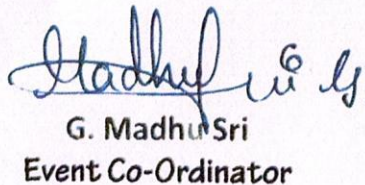 G. Madhu Sri
Event Co-Ordinator